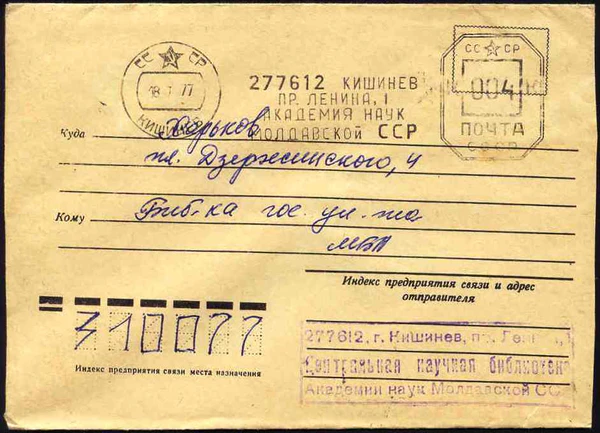 СС СР
18.1.77
КИШИНЕВ
277612 КИШИНЕВ
ПР. ЛЕНИНА, 1
АКАДЕМИЯ НАУК
МОЛДАВСКОЙ ССР
СС СР
004
ПОЧТА
СССР
Куда Харьков
пл. Дзержинского, 4
Кому Биб-ка гос. ун-та
МБА
Индекс предприятия связи и адрес
отправителя
310077
Индекс предприятия связи места назначения
277612, г. Кишинев, пр. Ленина, 1
Центральная научная библиотека
Академии наук Молдавской ССР